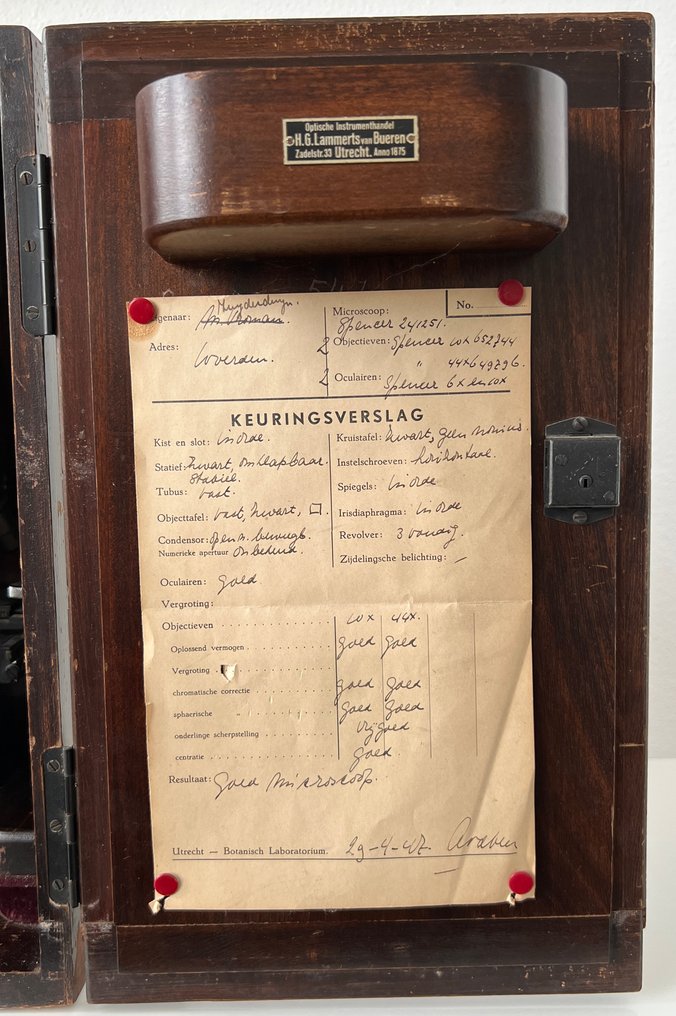 Optische Instrumenthandel
H.G. Lammerts van Bueren
Zadelstr. 33 Utrecht. Anno 1875
genaar:
Adres: Woerden.
Microscoop: No.
Spencer 241251.
2 Objectieven: Spencer 10x 652744
" 44x649796.
2 Oculairen: Spencer 6x en 10x
KEURINGSVERSLAG
Kist en slot: in orde.
Statief: zwart, omklapbaar.
stabiel.
Tubus: vast.
Objecttafel: vast, zwart, □.
Condensor: open n. beweegb.
Numerieke apertuur onbekend.
Kruistafel: zwart, geen nonius.
Instelschroeven: horizontaal.
Spiegels: in orde
Irisdiaphragma: in orde
Revolver: 3 voudig.
Zijdelingsche belichting: –
Oculairen: goed
Vergroting:
Objectieven 10x 44x.
Oplossend vermogen goed goed
Vergroting
chromatische correctie goed goed
sphaerische " goed goed
onderlinge scherpstelling vrij goed
centratie goed.
Resultaat: goed microscoop.
Utrecht — Botanisch Laboratorium. 29-4-47.